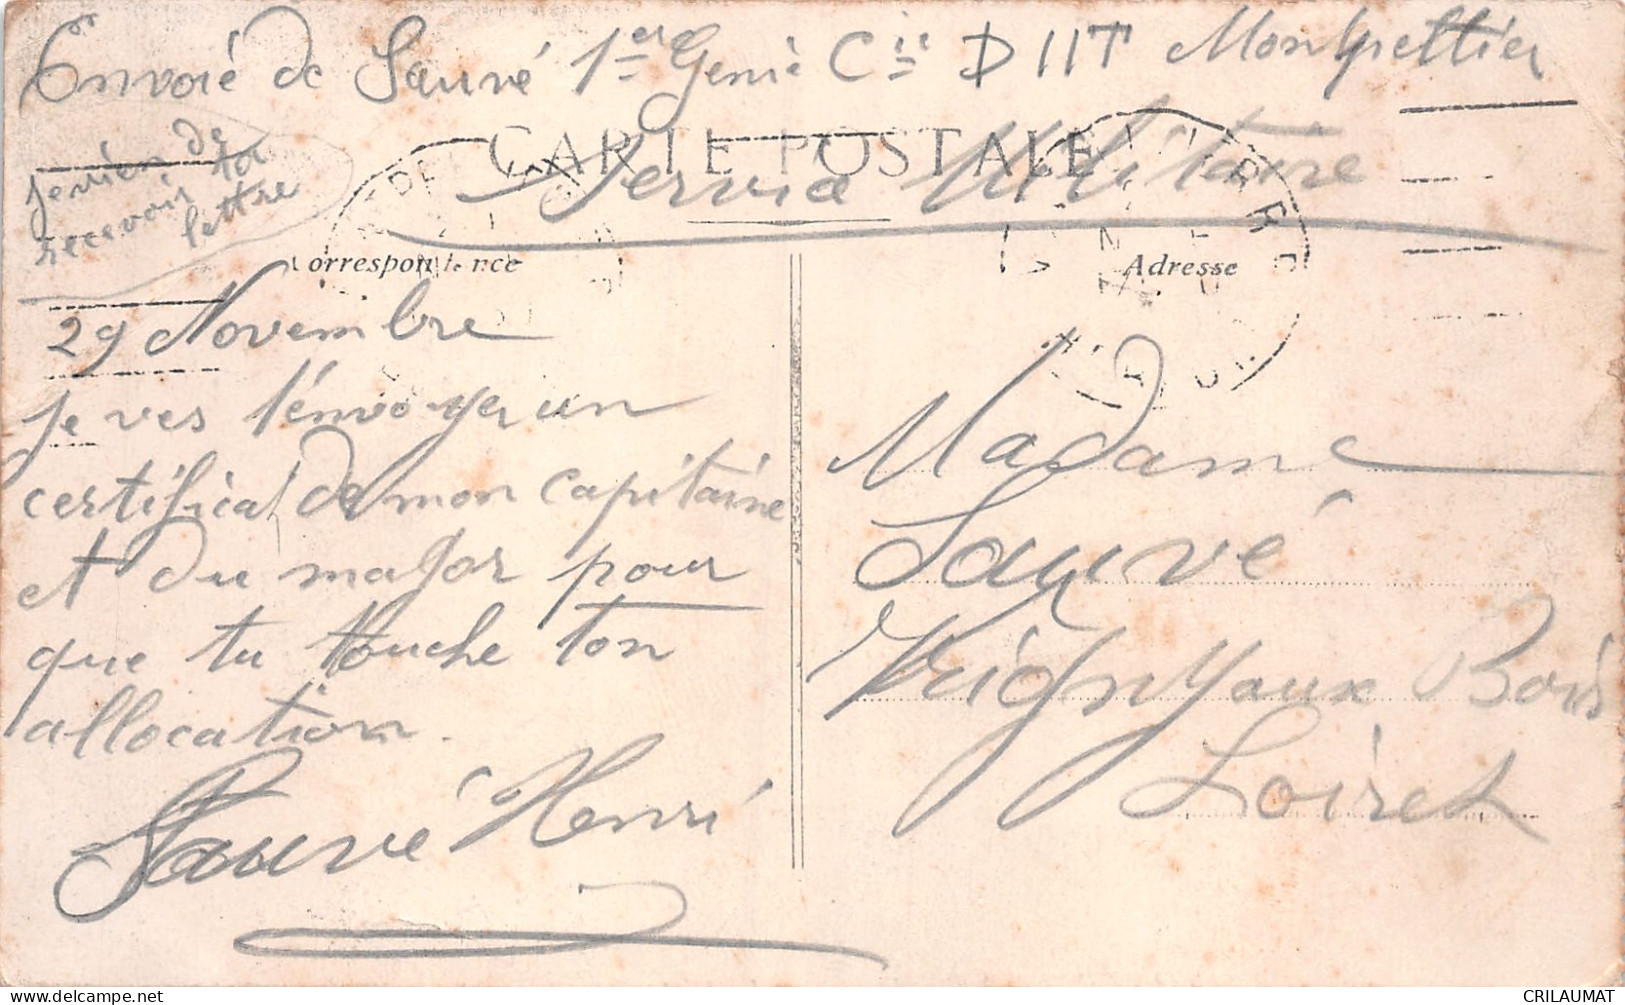 Envoié de Sauvé 1er Genie Cie D 11T Montpettier
CARTE POSTALE
Service Militaire
je viens de
recevoir ta
lettre
Correspondance
Adresse
29 Novembre
je ves t'envoyer un
certificat de mon capitaine
et du major pour
que tu touche ton
allocation.
Sauvé Henri
Madame
Sauvé
Vrigny aux Bois
Loiret
CRILAUMAT